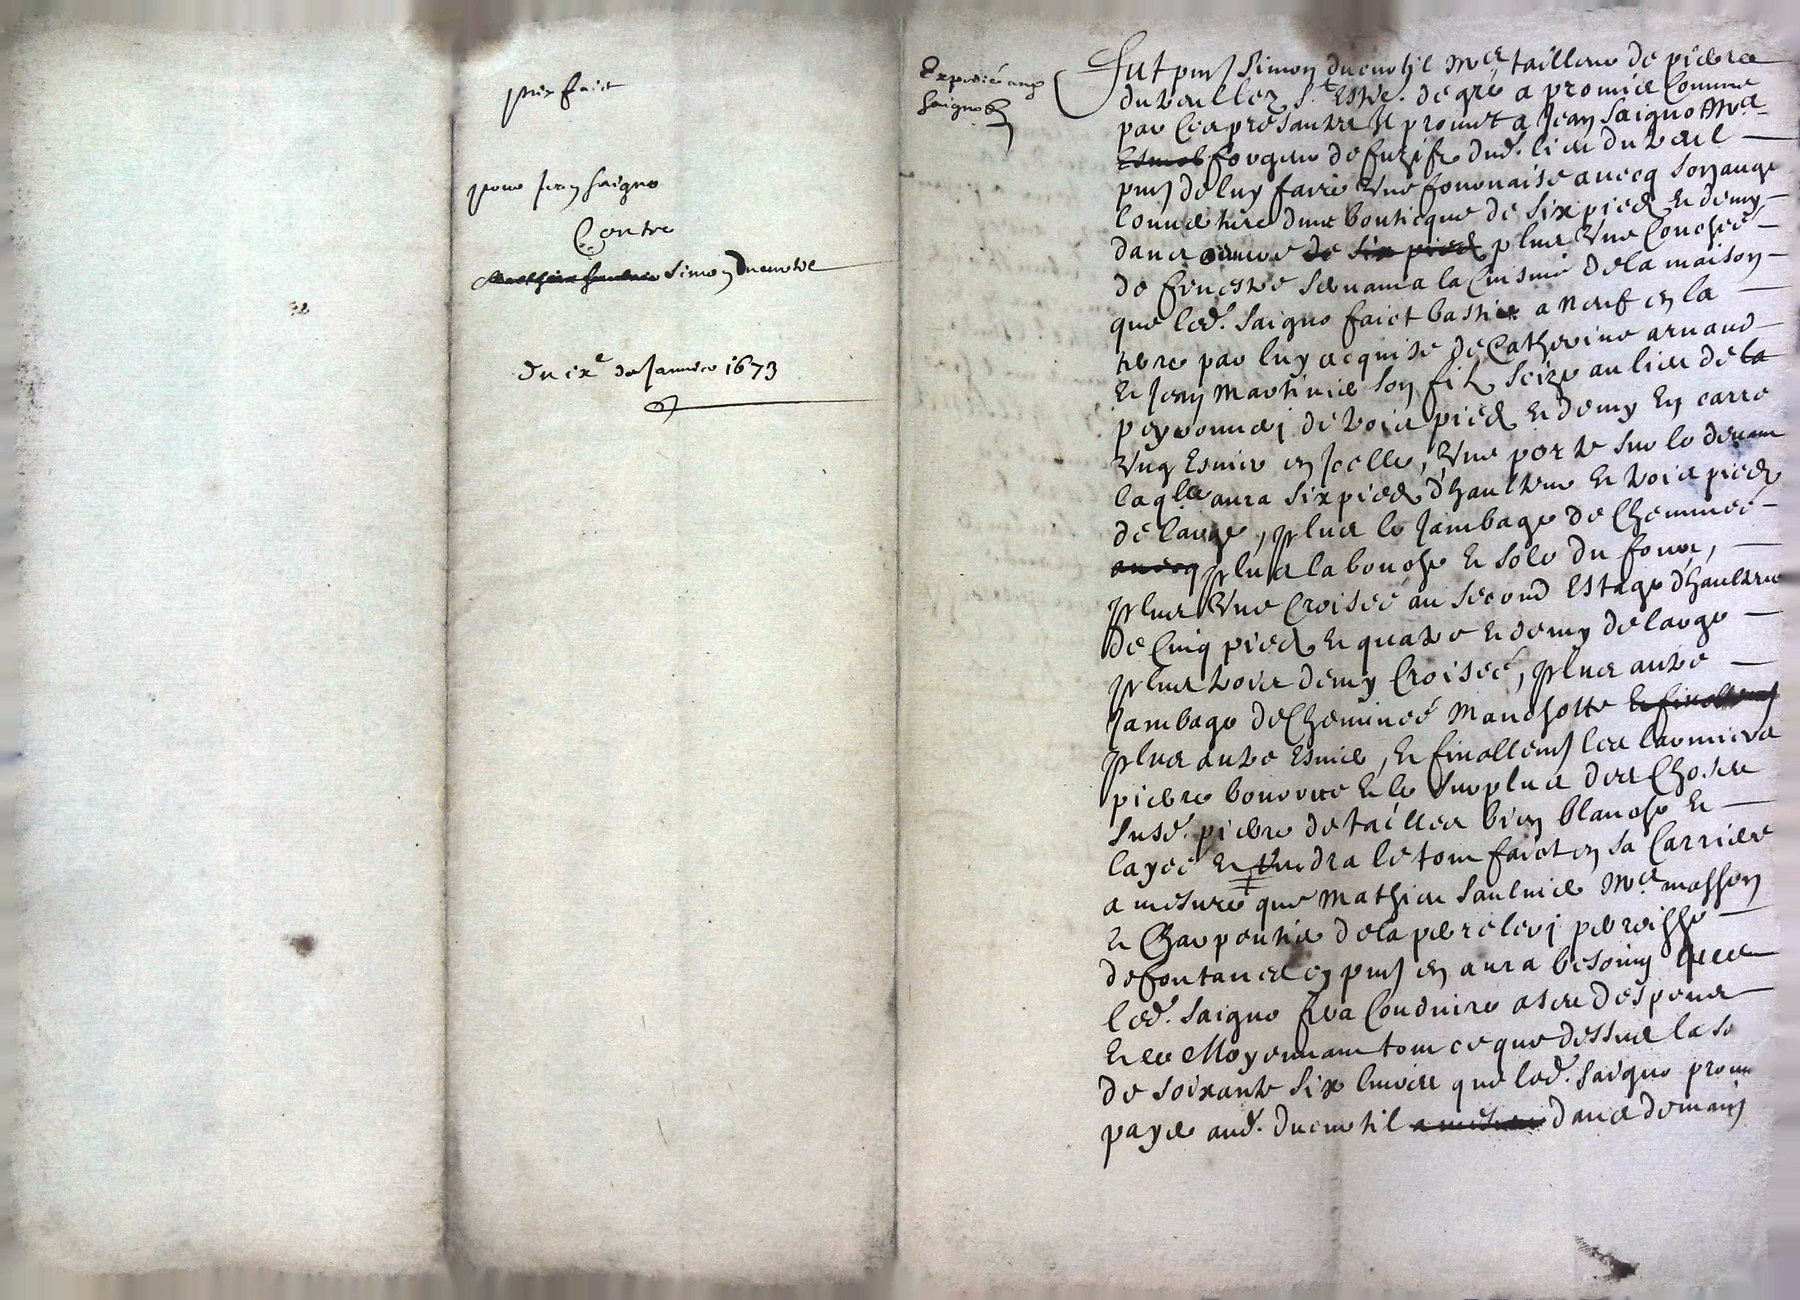 prix faict
pour Jean Saigno
Contre
Simon Ducurtil
du ixe de Janvier 1673
Expedié aud
Saigno
fut pnt Simon ducurtil Mre tailleur de pierre
de gré a promis Comme
par Ces presantes Il promet a Jean Saigno Mre
forgeur de fuzifz dud. lieu
pnt de luy faire Une fournaise avecq son auge
louverture dune bouticque de six pieds et demy
dans œuvre de six pieds plus Une Couchée
de fenestre servant a la Cuisine de la maison
que led. Saigno faict bastir a neuf en la
terre par luy acquise de Catherine arnaud
et Jean Martinie son filz scize au lieu de la
de trois pieds et demy En carré
Ung Esvier en Jcelle, Une porte sur le devant
laqlle aura six pieds d'haulteur et trois pieds
de large, plus le Jambage de Cheminée
avecq plus la bouche et sole du four,
plus Une Croisée au second Estage d'haulteur
de Cinq pieds et quatre et demy de large
plus trois demy Croisée, plus autre
Jambage de Cheminée Manchotte et finallemt
plus autre Esvier, et finallemt les larmiers
pierre et le surplus des Choses
susd. pierre de tailles bien blanche et
layée et rendra le tout faict en sa Carriere
a mesure que Mathieu Saulnier Mre masson
et Charpentier de la parroisse
de fontanes cy pnt en aura besoing que
led. Saigno fera Conduire a ses despens
et ce Moyennant tout ce que dessus la so
de soixante six livres que led. Saigno prom
payer aud. ducurtil dans demain